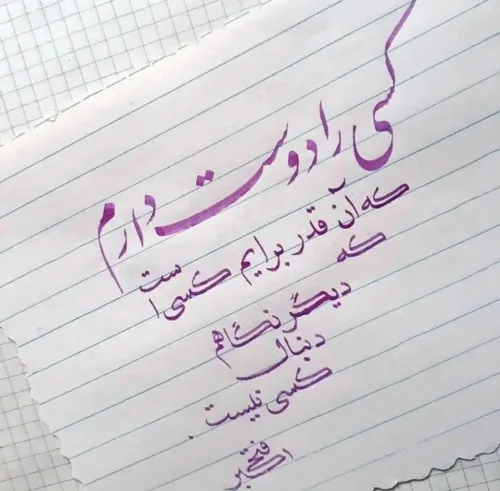 کسی را دوست دارم
که آن قدر برایم کسی است
که
دیگر نگاهم
دنبال
کسی نیست.
فتح
اکبر